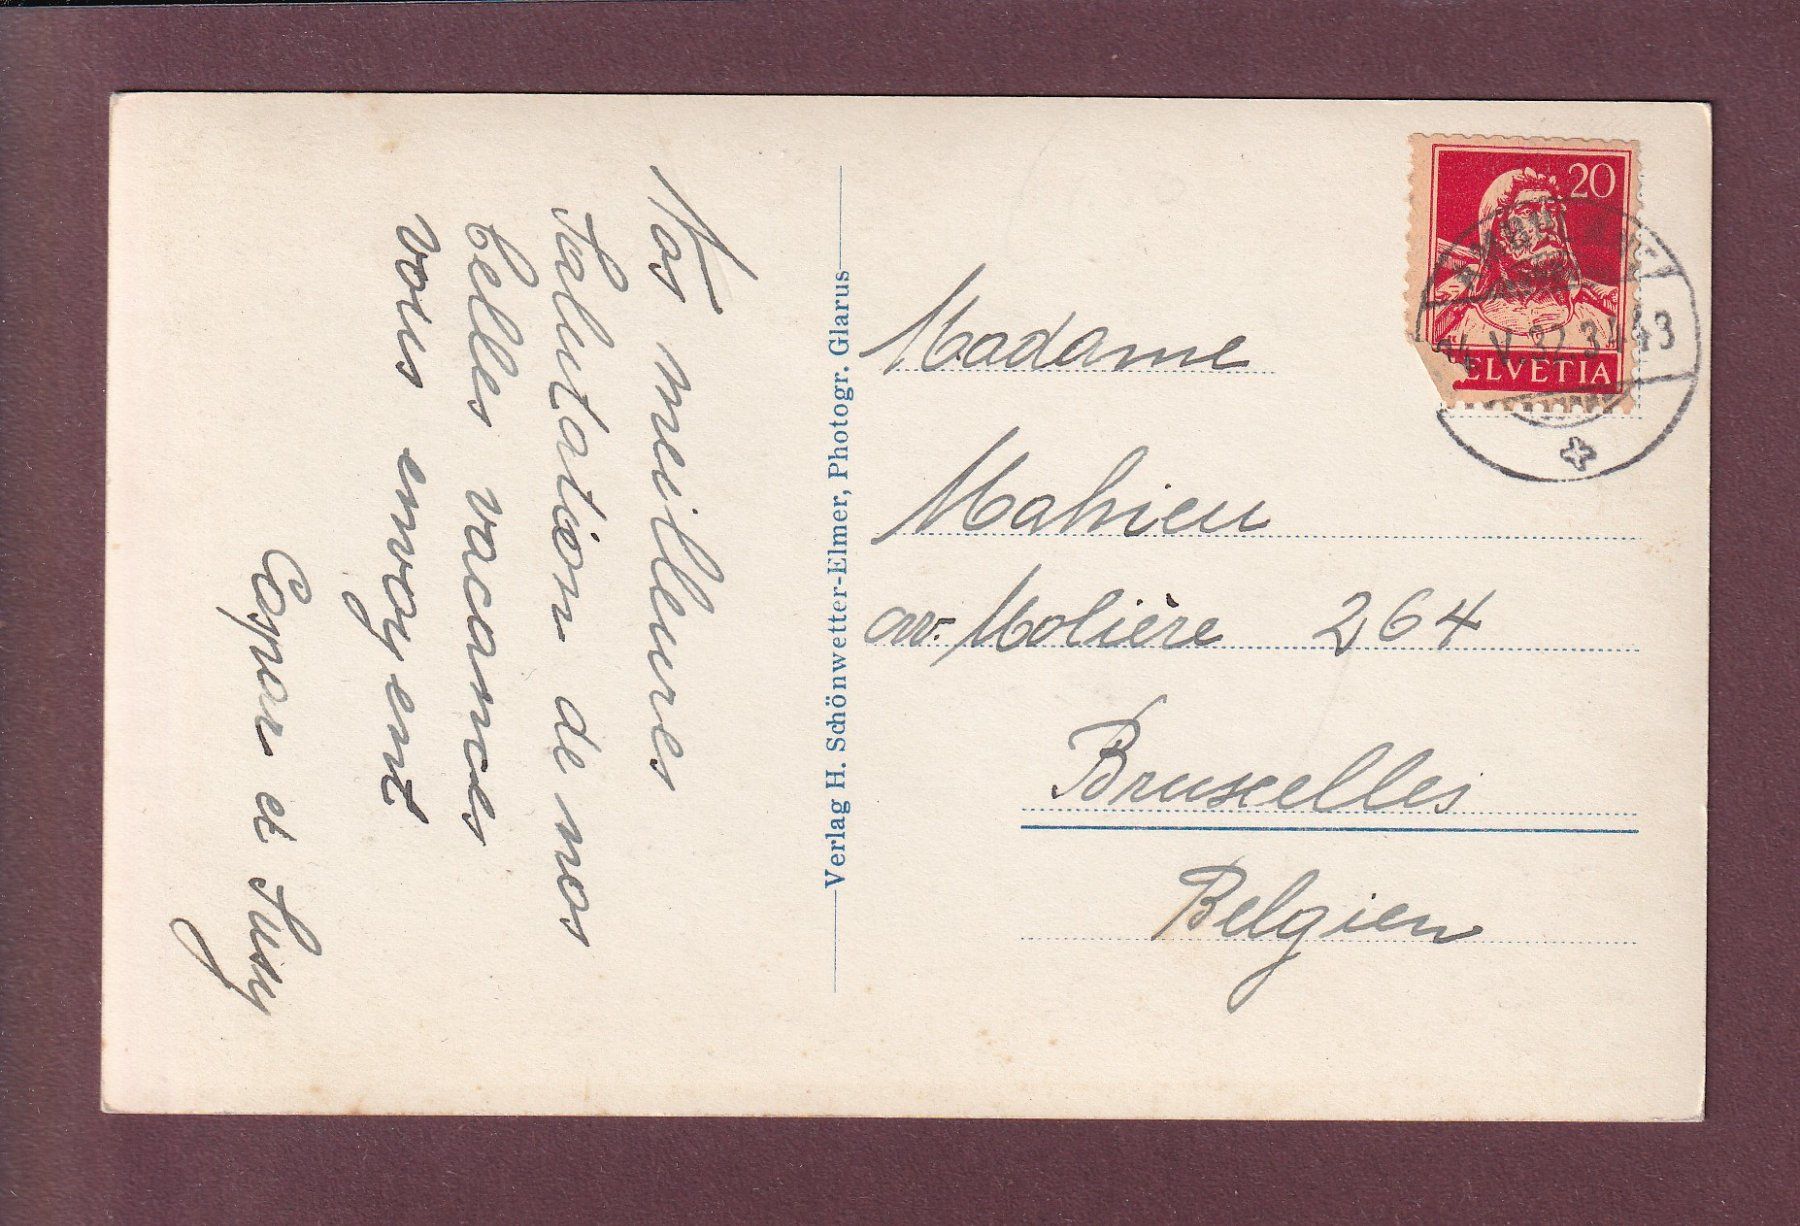 Nos meilleures
Salutation de nos
belles vacances
vous envoyent
Caspar et Susy
Verlag H. Schönwetter-Elmer, Photogr. Glarus
20
HELVETIA
Madame
Mahieu
av. Molière 264
Bruxelles
Belgien